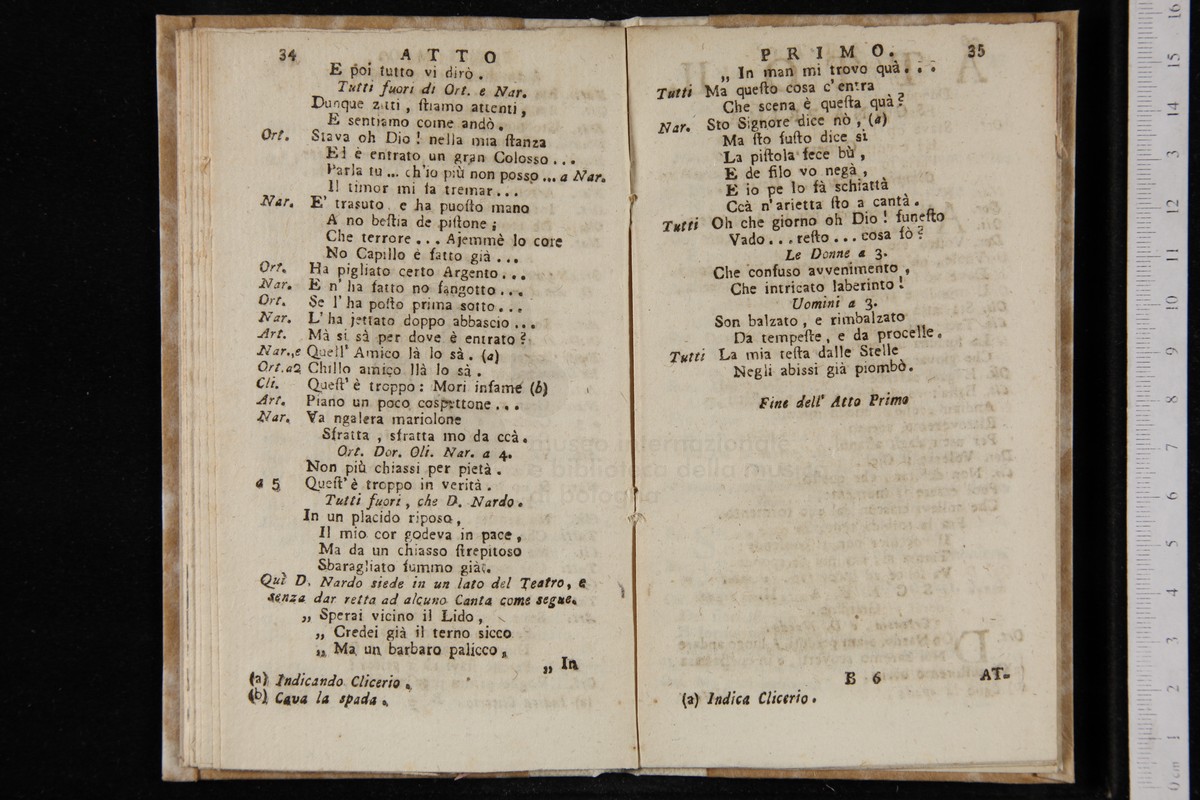 34 ATTO
E poi tutto vi dirò.
Tutti fuori di Ort. e Nar.
Dunque zitti, ſtiamo attenti,
E sentiamo come andò.
Ort. Stava oh Dio! nella mia ſtanza
Ed è entrato un gran Colosso...
Parla tu... ch'io più non posso... a Nar.
Il timor mi fa tremar...
Nar. E' trasuto e ha puoſto mano
A no beſtia de piſtone;
Che terrore... Ajemmè lo core
No Capillo è fatto già...
Ort. Ha pigliato certo Argento...
Nar. E n' ha fatto no fangotto...
Ort. Se l' ha poſto prima sotto...
Nar. L' ha jettato doppo abbascio...
Art. Mà si sà per dove è entrato?
Nar.,e Quell' Amico là lo sà. (a)
Ort.a2 Chillo amico llà lo sà.
Cli. Queſt' è troppo: Mori infame (b)
Art. Piano un poco cospettone...
Nar. Va ngalera mariolone
Sfratta, sfratta mo da ccà.
Ort. Dor. Oli. Nar. a 4.
Non più chiassi per pietà.
a 5 Queſt' è troppo in verità.
Tutti fuori, che D. Nardo.
In un placido riposo,
Il mio cor godeva in pace,
Ma da un chiasso ſtrepitoso
Sbaragliato fummo già.
Quì D. Nardo siede in un lato del Teatro, e
senza dar retta ad alcuno Canta come segue.
„ Sperai vicino il Lido,
„ Credei già il terno sicco
„ Ma un barbaro palicco,
„ In
(a) Indicando Clicerio.
(b) Cava la spada.
PRIMO. 35
„ In man mi trovo quà...
Tutti Ma queſto cosa c'entra
Che scena è queſta quà?
Nar. Sto Signore dice nò, (a)
Ma ſto fuſto dice si
La piſtola fece bù,
E de filo vo negà,
E io pe lo fà schiattà
Ccà n'arietta ſto a cantà.
Tutti Oh che giorno oh Dio! funeſto
Vado... reſto... cosa fò?
Le Donne a 3.
Che confuso avvenimento,
Che intricato laberinto!
Uomini a 3.
Son balzato, e rimbalzato
Da tempeſte, e da procelle.
Tutti La mia teſta dalle Stelle
Negli abissi già piombò.
Fine dell' Atto Primo
E 6 AT-
(a) Indica Clicerio.
museo internazionale
e biblioteca della musica
di bologna